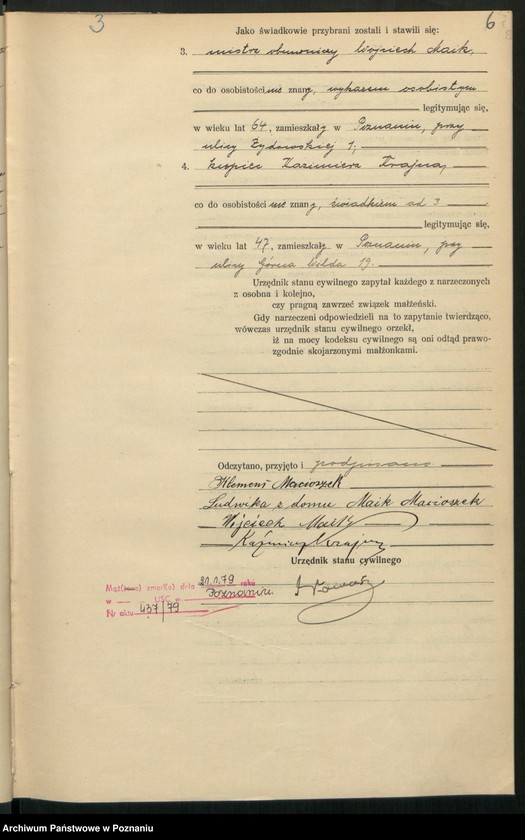 3
6
Jako świadkowie przybrani zostali i stawili się:
3. mistrz Wojciech Maik,
co do osobistości nie znany, wykazem osobistym
legitymując się,
w wieku lat 64, zamieszkały w Poznaniu, przy
ulicy Żydowskiej 1,
4. kupiec Kazimierz Krajna,
co do osobistości nie znany, świadkiem ad 3
legitymując się,
w wieku lat 47, zamieszkały w Poznaniu, przy
ulicy Górna Wilda 19.
Urzędnik stanu cywilnego zapytał każdego z narzeczonych
z osobna i kolejno,
czy pragną zawrzeć związek małżeński.
Gdy narzeczeni odpowiedzieli na to zapytanie twierdząco,
wówczas urzędnik stanu cywilnego orzekł,
iż na mocy kodeksu cywilnego są oni odtąd prawo-
zgodnie skojarzonymi małżonkami.
Odczytano, przyjęto i podpisano
Klemens Macioszek
Ludwika z domu Maik Macioszek
Wojciech Maik
Kazimierz Krajna
Urzędnik stanu cywilnego
Mąż(żona) zmarł(a) dnia 21.1.79 roku
w — USC w Poznaniu.
Nr aktu 437/79
Archiwum Państwowe w Poznaniu